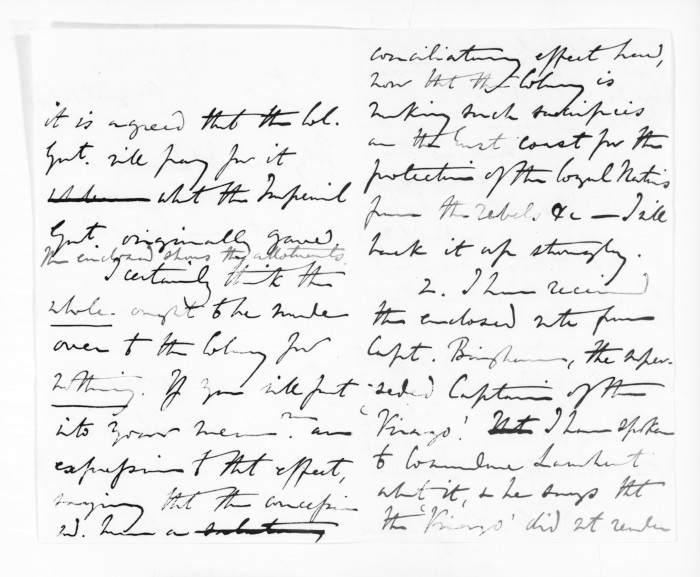 it is agreed that the Col.
Govt. will pay for it
what the Imperial
Govt. originally gave
The enclosed shows the allotments.
I certainly think the
whole ought to be made
over to the Colony for
nothing. If you will put
into your mem:m an
expression to that effect,
saying that the concession
wd. have a salutary
conciliatory effect here,
now that the Colony is
making such sacrifices
on the East coast for the
protection of the loyal Natives
from the rebels &c — I will
back it up strongly.
2. I have received
the enclosed note from
Capt. Bingham, the super-
-seded Captain of the
'Virago'. Not I have spoken
to Commodore Lambert
about it, & he says that
the 'Virago' did not render